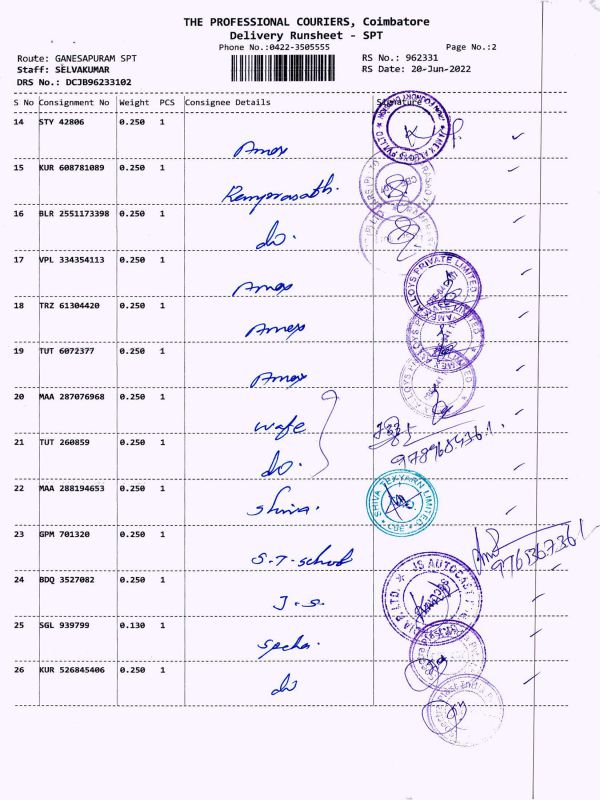 THE PROFESSIONAL COURIERS, Coimbatore
Delivery Runsheet - SPT
Phone No.:0422-3505555 Page No.:2
Route: GANESAPURAM SPT RS No.: 962331
Staff: SELVAKUMAR RS Date: 20-Jun-2022
DRS No.: DCJB96233102
S No Consignment No Weight PCS Consignee Details Signature
14 STY 42806 0.250 1
Amex
15 KUR 608781089 0.250 1
Ramprasath.
16 BLR 2551173398 0.250 1
do.
17 VPL 334354113 0.250 1
Amex
ALLOYS PRIVATE LIMITED
18 TRZ 61304420 0.250 1
Amex
AMEX ALLOYS PRIVATE LIMITED
19 TUT 6072377 0.250 1
Amex
20 MAA 287076968 0.250 1
wafe
21 TUT 260859 0.250 1
do.
22 MAA 288194653 0.250 1
Shiva.
SHIVA TEXYARN LIMITED
CBE
23 GPM 701320 0.250 1
S.T. School
9761367361
24 BDQ 3527082 0.250 1
J.S.
JS AUTOCAST
25 SGL 939799 0.130 1
26 KUR 526845406 0.250 1
do